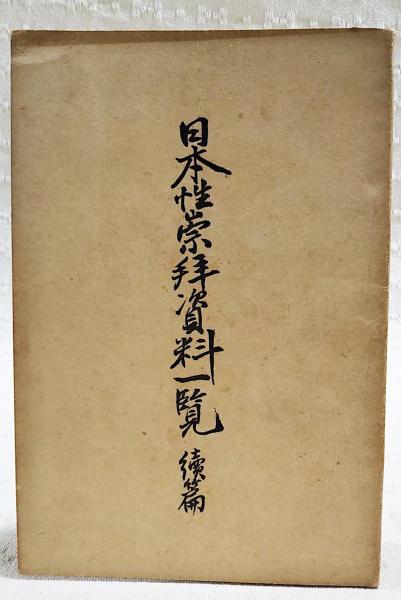 日本性崇拜資料一覧 續篇